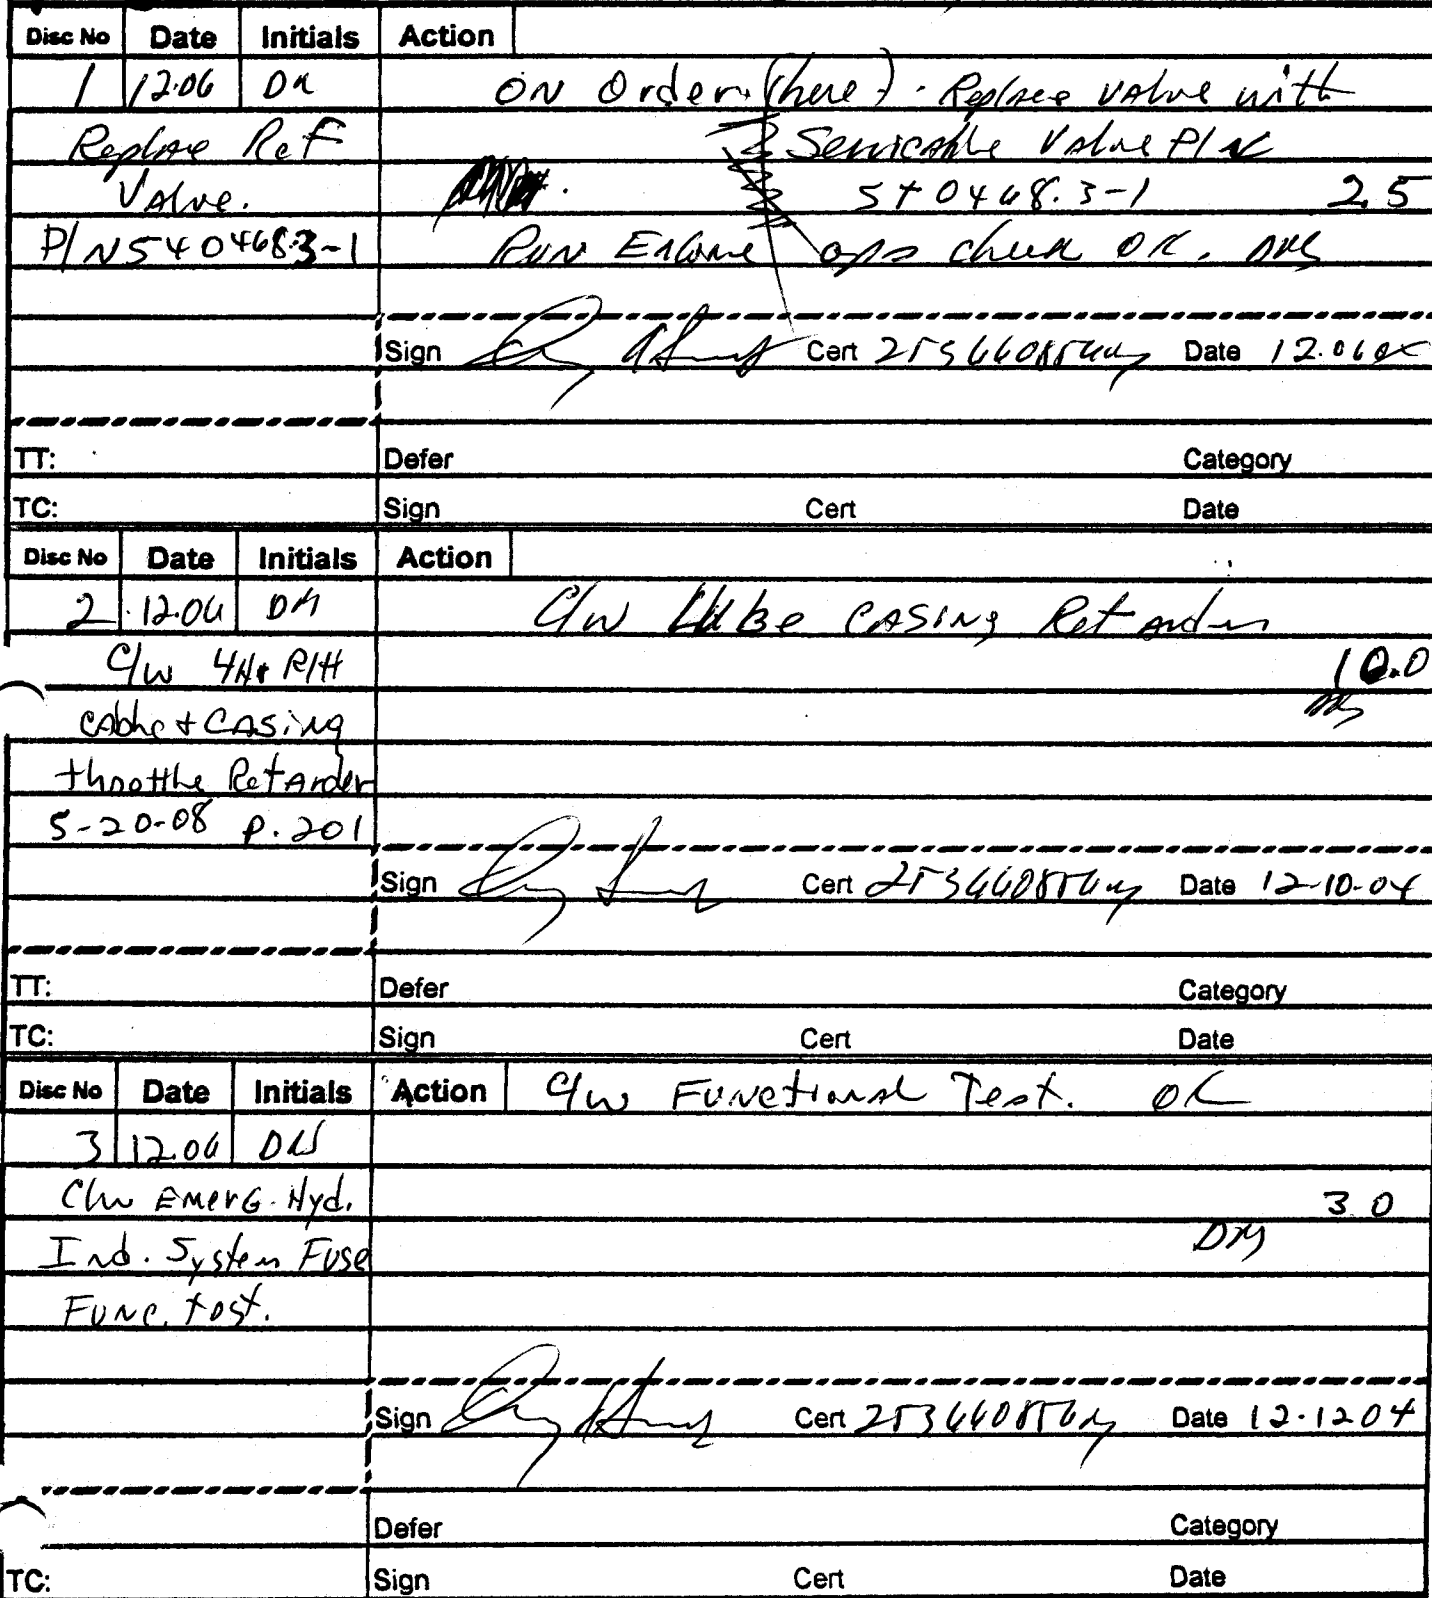 Disc No Date Initials Action
1 12.06 ON Order (here). Replace valve with
Replace Ref Serviceable Valve P/N
Valve. 540468.3-1 2.5
P/N 5404683-1 Run Engine ops check OK.
Sign Cert Date 12.06
TT: Defer Category
TC: Sign Cert Date
Disc No Date Initials Action
2 12.06 DM C/W Lube CASING Retarder
C/W R/H 10.0
cable + CASING
throttle Retarder
5-20-08 p.201
Sign Cert Date 12-10-04
TT: Defer Category
TC: Sign Cert Date
Disc No Date Initials Action C/W Functional Test. OK
3 12.06
C/W Emerg. Hyd. 3.0
Ind. System Fuse DM
Func. test.
Sign Cert Date 12.1204
Defer Category
TC: Sign Cert Date